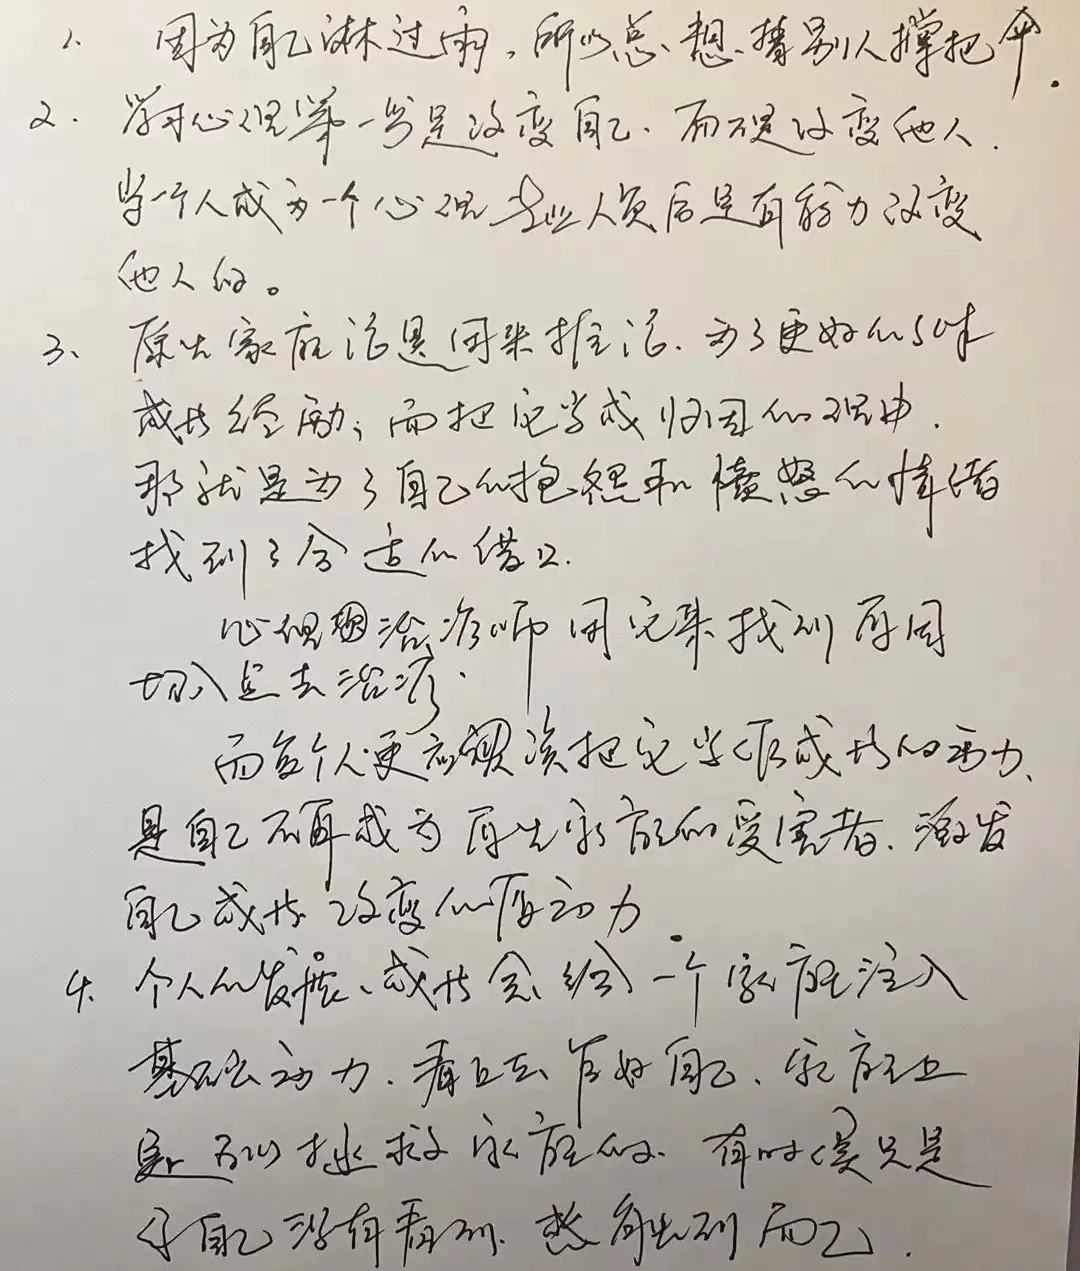 1. 因为自己淋过雨，所以总想替别人撑把伞.
2. 学习心理学一当是改变自己. 而不是改变他人.
当一个人成为一个心理专业人员后是有能力改变
他人的。
3、原生家庭治是用来推治. 为了更好的
成长经历；而把它当成归因的理由.
那就是为了自己的抱怨和愤怒的情绪
找到了合适的借口.
心理治疗师用它来找到原因
切入点去治疗.
而每个人更应该把它当作成长的动力、
是自己不再成为原生家庭的受害者. 激发
自己成长改变的原动力.
4. 个人的发展、成长会给一个家庭注入
基础动力. 看上去自己、家庭
是可以拯救家庭的. 有时候只是
自己没有看到. 感觉到而已.